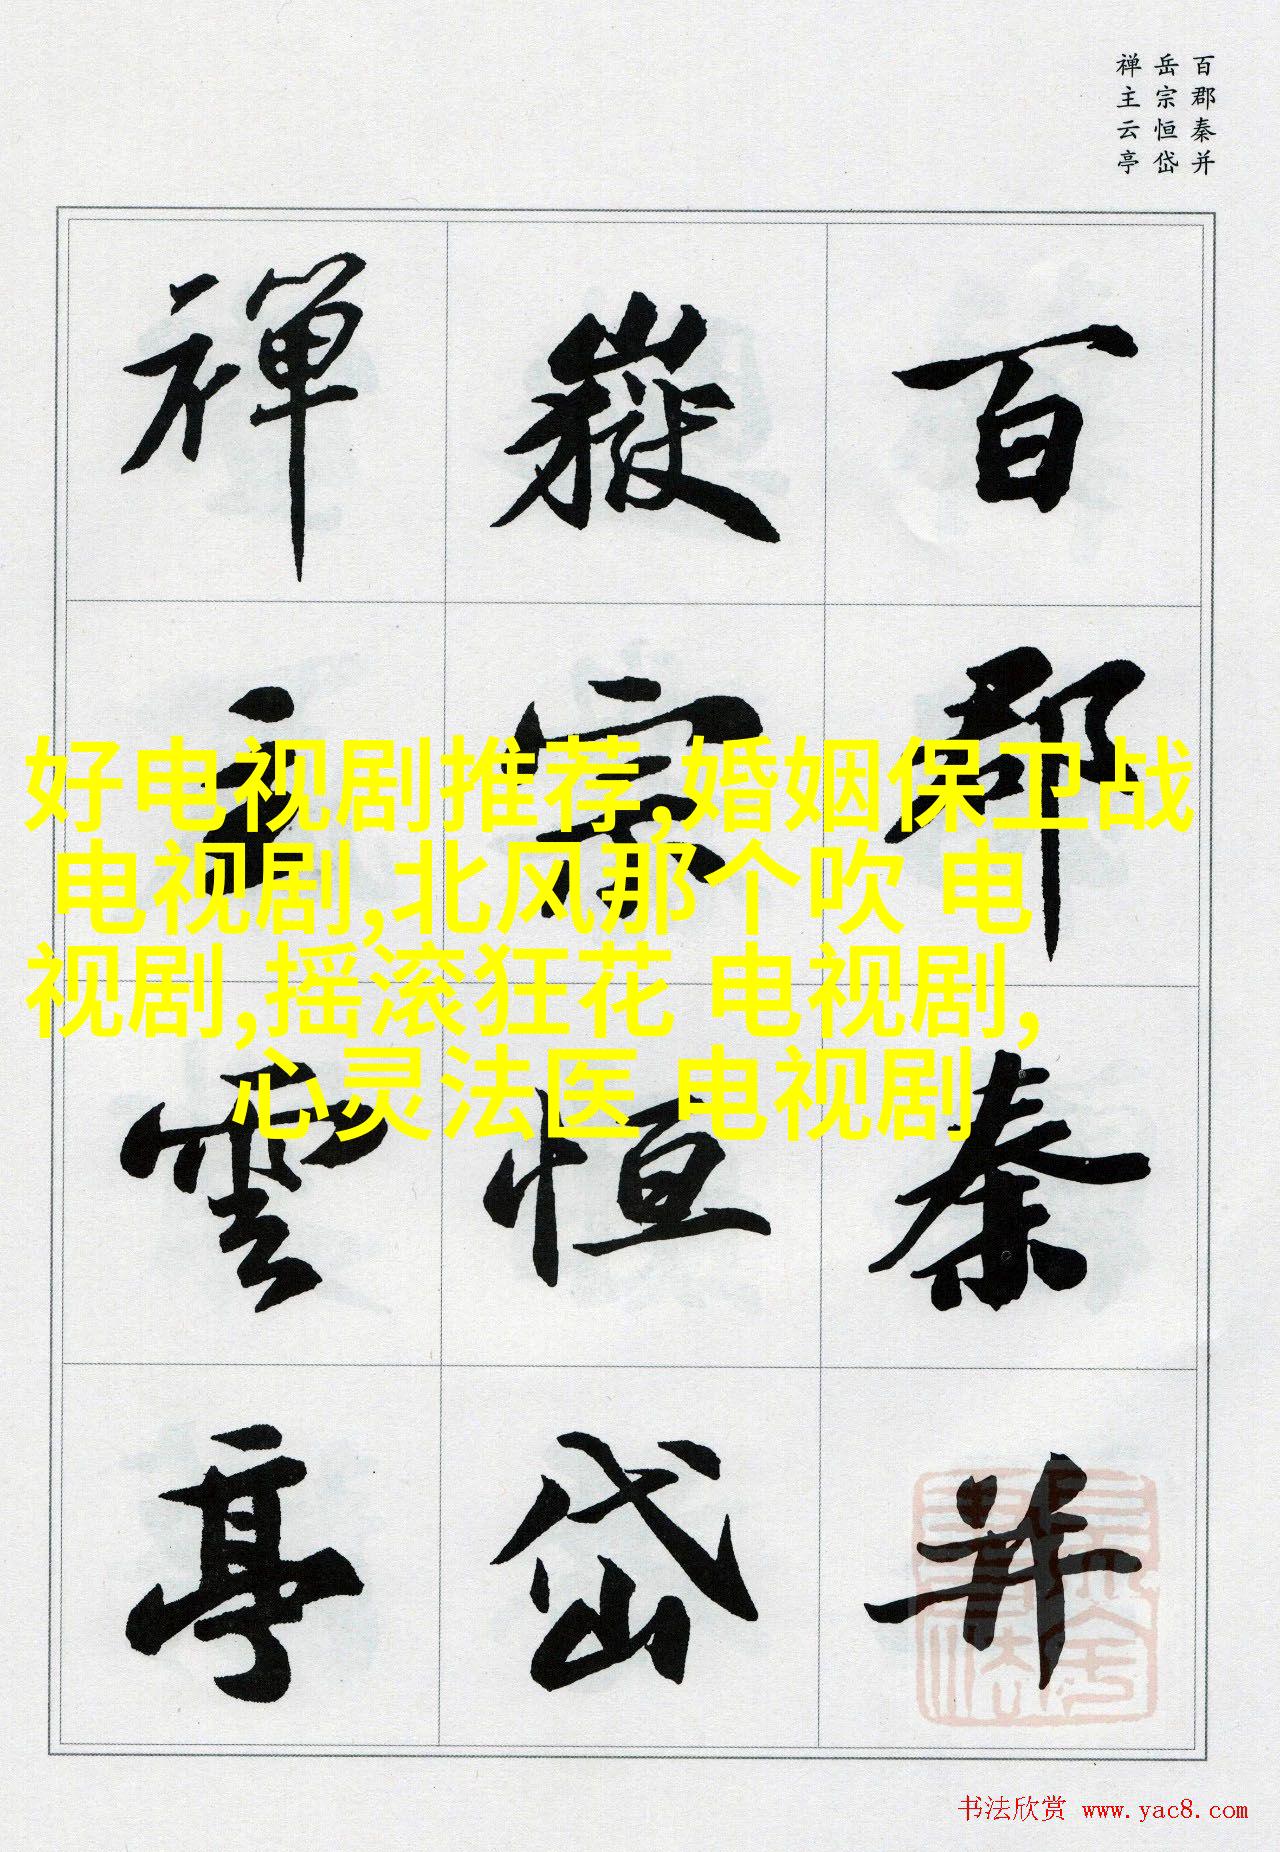 百郡秦并
岳宗恒岱
禅主云亭
百郡秦并
嶽宗恒岱
禪主雲亭
好电视剧推荐,婚姻保卫战
电视剧,北风那个吹 电
视剧,摇滚狂花 电视剧,
心灵法医 电视剧
书法欣赏 www.yac8.com